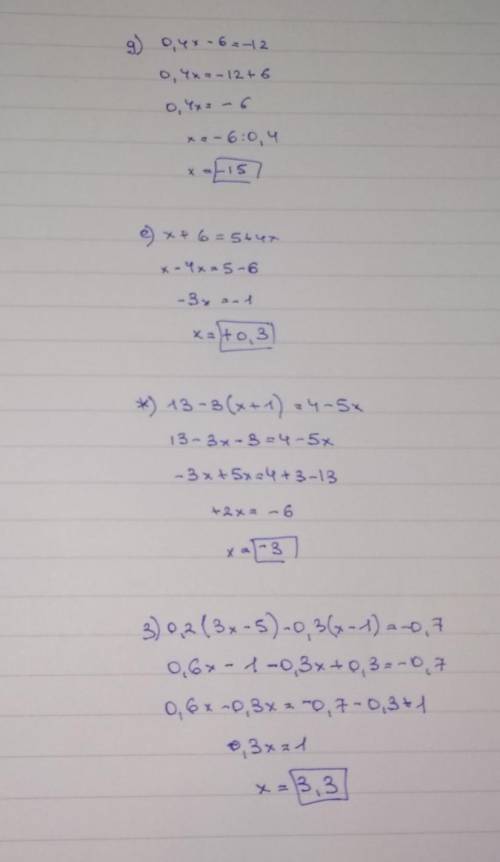 д) 0,4x - 6 = -12
0,4x = -12 + 6
0,4x = - 6
x = - 6 : 0,4
x = -15
е) x + 6 = 5 + 4x
x - 4x = 5 - 6
-3x = -1
x = +0,3
ж) 13 - 3(x+1) = 4 - 5x
13 - 3x - 3 = 4 - 5x
-3x + 5x = 4 + 3 - 13
+2x = - 6
x = -3
з) 0,2(3x - 5) - 0,3(x - 1) = -0,7
0,6x - 1 - 0,3x + 0,3 = -0,7
0,6x - 0,3x = -0,7 - 0,3 + 1
0,3x = 1
x = 3,3